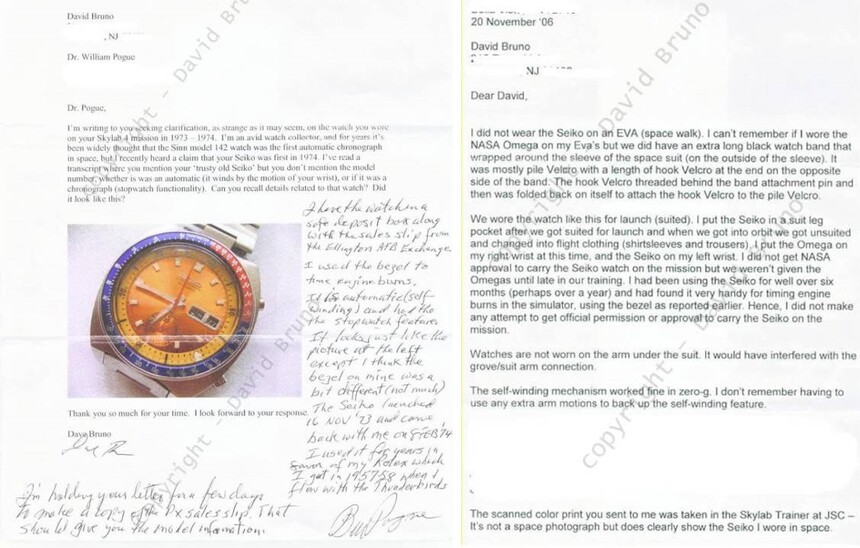 David Bruno
, NJ
Dr. William Pogue
Dr. Pogue,
I'm writing to you seeking clarification, as strange as it may seem, on the watch you wore
on your Skylab 4 mission in 1973 – 1974. I'm an avid watch collector, and for years it's
been widely thought that the Sinn model 142 watch was the first automatic chronograph
in space, but I recently heard a claim that your Seiko was first in 1974. I've read a
transcript where you mention your 'trusty old Seiko' but you don't mention the model
number, whether is was an automatic (it winds by the motion of your wrist), or if it was a
chronograph (stopwatch functionality). Can you recall details related to that watch? Did
it look like this?
I have the watch in a
safe deposit box along
with the sales slip from
the Ellington AFB Exchange.
I used the bezel to
time engine burns.
It is automatic (self
winding) and had the
the stopwatch features
It looks just like the
picture at the left
except I think the
bezel on mine was a
bit different (not much)
The Seiko launched
16 NOV '73 and came
back with me on 8 FEB '74
I used it for years in
favor of my Rolex which
I got in 1957-58 when I
flew with the Thunderbirds
Bill Pogue
Thank you so much for your time. I look forward to your response.
Dave Bruno
I'm holding your letter for a few days
to make a copy of the Px sales slip. That
should give you the model information.
20 November '06
David Bruno
NJ
Dear David,
I did not wear the Seiko on an EVA (space walk). I can't remember if I wore the
NASA Omega on my Eva's but we did have an extra long black watch band that
wrapped around the sleeve of the space suit (on the outside of the sleeve). It
was mostly pile Velcro with a length of hook Velcro at the end on the opposite
side of the band. The hook Velcro threaded behind the band attachment pin and
then was folded back on itself to attach the hook Velcro to the pile Velcro.
We wore the watch like this for launch (suited). I put the Seiko in a suit leg
pocket after we got suited for launch and when we got into orbit we got unsuited
and changed into flight clothing (shirtsleeves and trousers). I put the Omega on
my right wrist at this time, and the Seiko on my left wrist. I did not get NASA
approval to carry the Seiko watch on the mission but we weren't given the
Omegas until late in our training. I had been using the Seiko for well over six
months (perhaps over a year) and had found it very handy for timing engine
burns in the simulator, using the bezel as reported earlier. Hence, I did not make
any attempt to get official permission or approval to carry the Seiko on the
mission.
Watches are not worn on the arm under the suit. It would have interfered with the
grove/suit arm connection.
The self-winding mechanism worked fine in zero-g. I don't remember having to
use any extra arm motions to back up the self-winding feature.
The scanned color print you sent to me was taken in the Skylab Trainer at JSC –
It's not a space photograph but does clearly show the Seiko I wore in space.
copyright - David Bruno
copyright - David Bruno
copyright - David Bruno
copyright - David Bruno